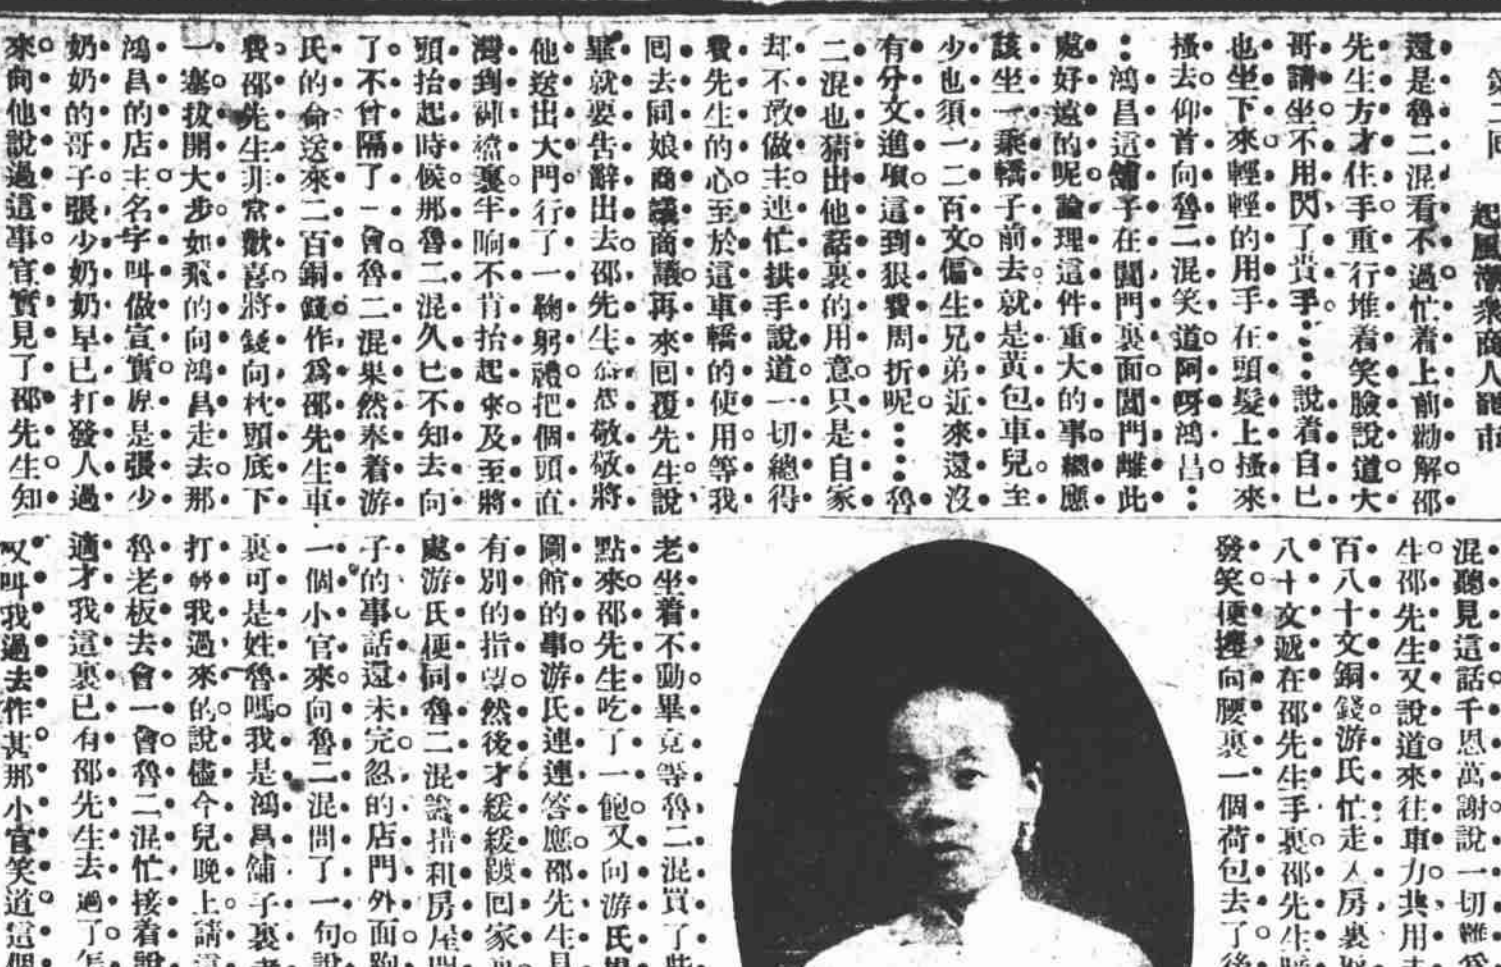 第二回　起風潮衆商人罷市
還是魯二混看不過忙着上前勸解邵
先生方才住手重行堆着笑臉說道大
哥請坐不用閃了貴手⋮⋮說着自已
也坐下來輕輕的用手在頭髮上搔來
搔去仰首向魯二混笑道阿呀鴻昌⋮
⋮鴻昌這舖子在閶門裏面閶門離此
處好遠的呢論理這件重大的事總應
該坐一乘轎子前去就是黃包車兒至
少也須一二百文偏生兄弟近來還沒
有分文進項這到狠費周折呢⋮⋮魯
二混也猜出他話裏的用意只是自家
却不敢做主連忙拱手說道一切總得
費先生的心至於這車轎的使用等我
回去同娘商議商議再來回覆先生說
畢就要告辭出去邵先生恭恭敬敬將
他送出大門行了一鞠躬禮把個頭直
灣到褲襠裏半晌不肯抬起來及至將
頭抬起時候那魯二混久已不知去向
了不曾隔了一會魯二混果然奉着游
氏的命送來二百銅錢作爲邵先生車
費邵先生非常歡喜將錢向枕頭底下
一塞拔開大步如飛的向鴻昌走去那
鴻昌的店主名字叫做宣實原是張少
奶奶的哥子張少奶奶早已打發人過
來向他說過這事宣實見了邵先生知
混聽見這話千恩萬謝說一切難爲
生邵先生又說道來往車力共用去
百八十文銅錢游氏忙走入房裏取
八十文遞在邵先生手裏邵先生
發笑便擾向腰裏一個荷包去了後
老坐着不動畢竟等魯二混買了些
點來邵先生吃了一飽又向游氏
圖館的事游氏連連答應邵先生見
有別的指望然後才緩緩踱回家
處游氏便同魯二混籌措和房屋
子的事話還未完忽的店門外面跑
一個小官來向魯二混問了一句說
裏可是姓魯嗎我是鴻昌舖子裏老
打發我過來的說儘今兒晚上請
魯老板去會一會魯二混忙接着說
適才我這裏已有邵先生去過了怎
又叫我過去作甚那小官笑道這個